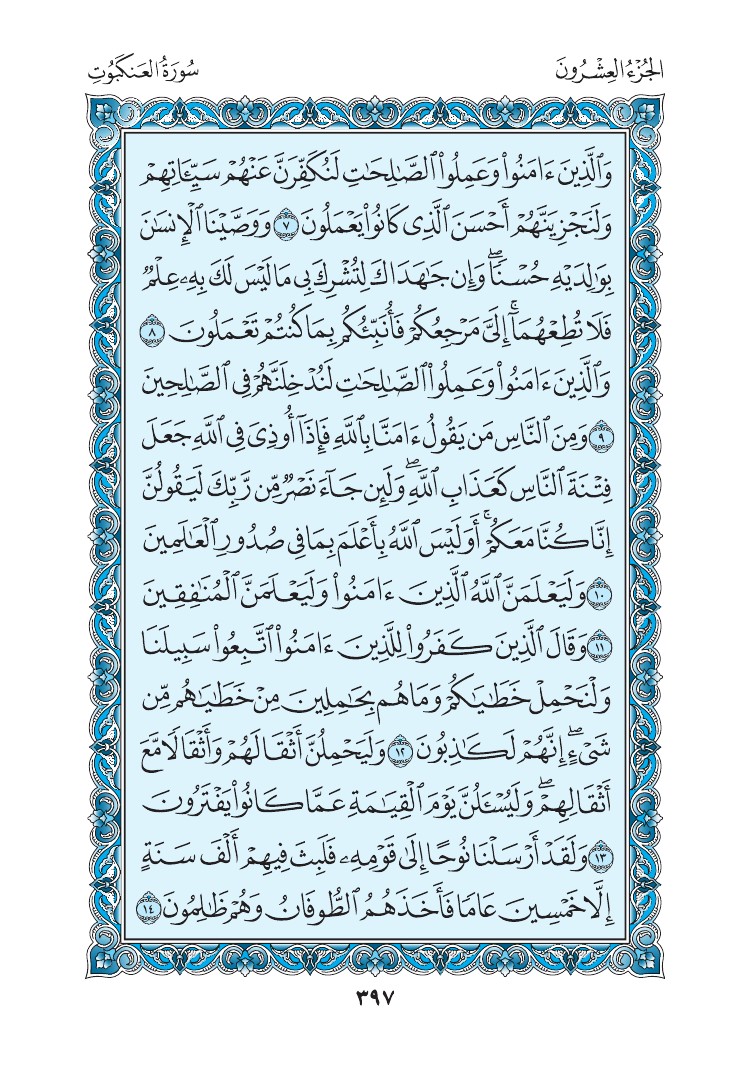 الجُزْءُ العِشْرُونَ
سُورَةُ العَنكَبُوتِ
وَٱلَّذِينَ ءَامَنُوا۟ وَعَمِلُوا۟ ٱلصَّٰلِحَٰتِ لَنُكَفِّرَنَّ عَنْهُمْ سَيِّـَٔاتِهِمْ
وَلَنَجْزِيَنَّهُمْ أَحْسَنَ ٱلَّذِى كَانُوا۟ يَعْمَلُونَ ٧ وَوَصَّيْنَا ٱلْإِنسَٰنَ
بِوَٰلِدَيْهِ حُسْنًا ۖ وَإِن جَٰهَدَاكَ لِتُشْرِكَ بِى مَا لَيْسَ لَكَ بِهِۦ عِلْمٌ
فَلَا تُطِعْهُمَآ ۚ إِلَىَّ مَرْجِعُكُمْ فَأُنَبِّئُكُم بِمَا كُنتُمْ تَعْمَلُونَ ٨
وَٱلَّذِينَ ءَامَنُوا۟ وَعَمِلُوا۟ ٱلصَّٰلِحَٰتِ لَنُدْخِلَنَّهُمْ فِى ٱلصَّٰلِحِينَ
٩ وَمِنَ ٱلنَّاسِ مَن يَقُولُ ءَامَنَّا بِٱللَّهِ فَإِذَآ أُوذِىَ فِى ٱللَّهِ جَعَلَ
فِتْنَةَ ٱلنَّاسِ كَعَذَابِ ٱللَّهِ ۖ وَلَئِن جَآءَ نَصْرٌ مِّن رَّبِّكَ لَيَقُولُنَّ
إِنَّا كُنَّا مَعَكُمْ ۚ أَوَلَيْسَ ٱللَّهُ بِأَعْلَمَ بِمَا فِى صُدُورِ ٱلْعَٰلَمِينَ
١٠ وَلَيَعْلَمَنَّ ٱللَّهُ ٱلَّذِينَ ءَامَنُوا۟ وَلَيَعْلَمَنَّ ٱلْمُنَٰفِقِينَ
١١ وَقَالَ ٱلَّذِينَ كَفَرُوا۟ لِلَّذِينَ ءَامَنُوا۟ ٱتَّبِعُوا۟ سَبِيلَنَا
وَلْنَحْمِلْ خَطَٰيَٰكُمْ وَمَا هُم بِحَٰمِلِينَ مِنْ خَطَٰيَٰهُم مِّن
شَىْءٍ ۖ إِنَّهُمْ لَكَٰذِبُونَ ١٢ وَلَيَحْمِلُنَّ أَثْقَالَهُمْ وَأَثْقَالًا مَّعَ
أَثْقَالِهِمْ ۖ وَلَيُسْـَٔلُنَّ يَوْمَ ٱلْقِيَٰمَةِ عَمَّا كَانُوا۟ يَفْتَرُونَ
١٣ وَلَقَدْ أَرْسَلْنَا نُوحًا إِلَىٰ قَوْمِهِۦ فَلَبِثَ فِيهِمْ أَلْفَ سَنَةٍ
إِلَّا خَمْسِينَ عَامًا فَأَخَذَهُمُ ٱلطُّوفَانُ وَهُمْ ظَٰلِمُونَ ١٤
٣٩٧